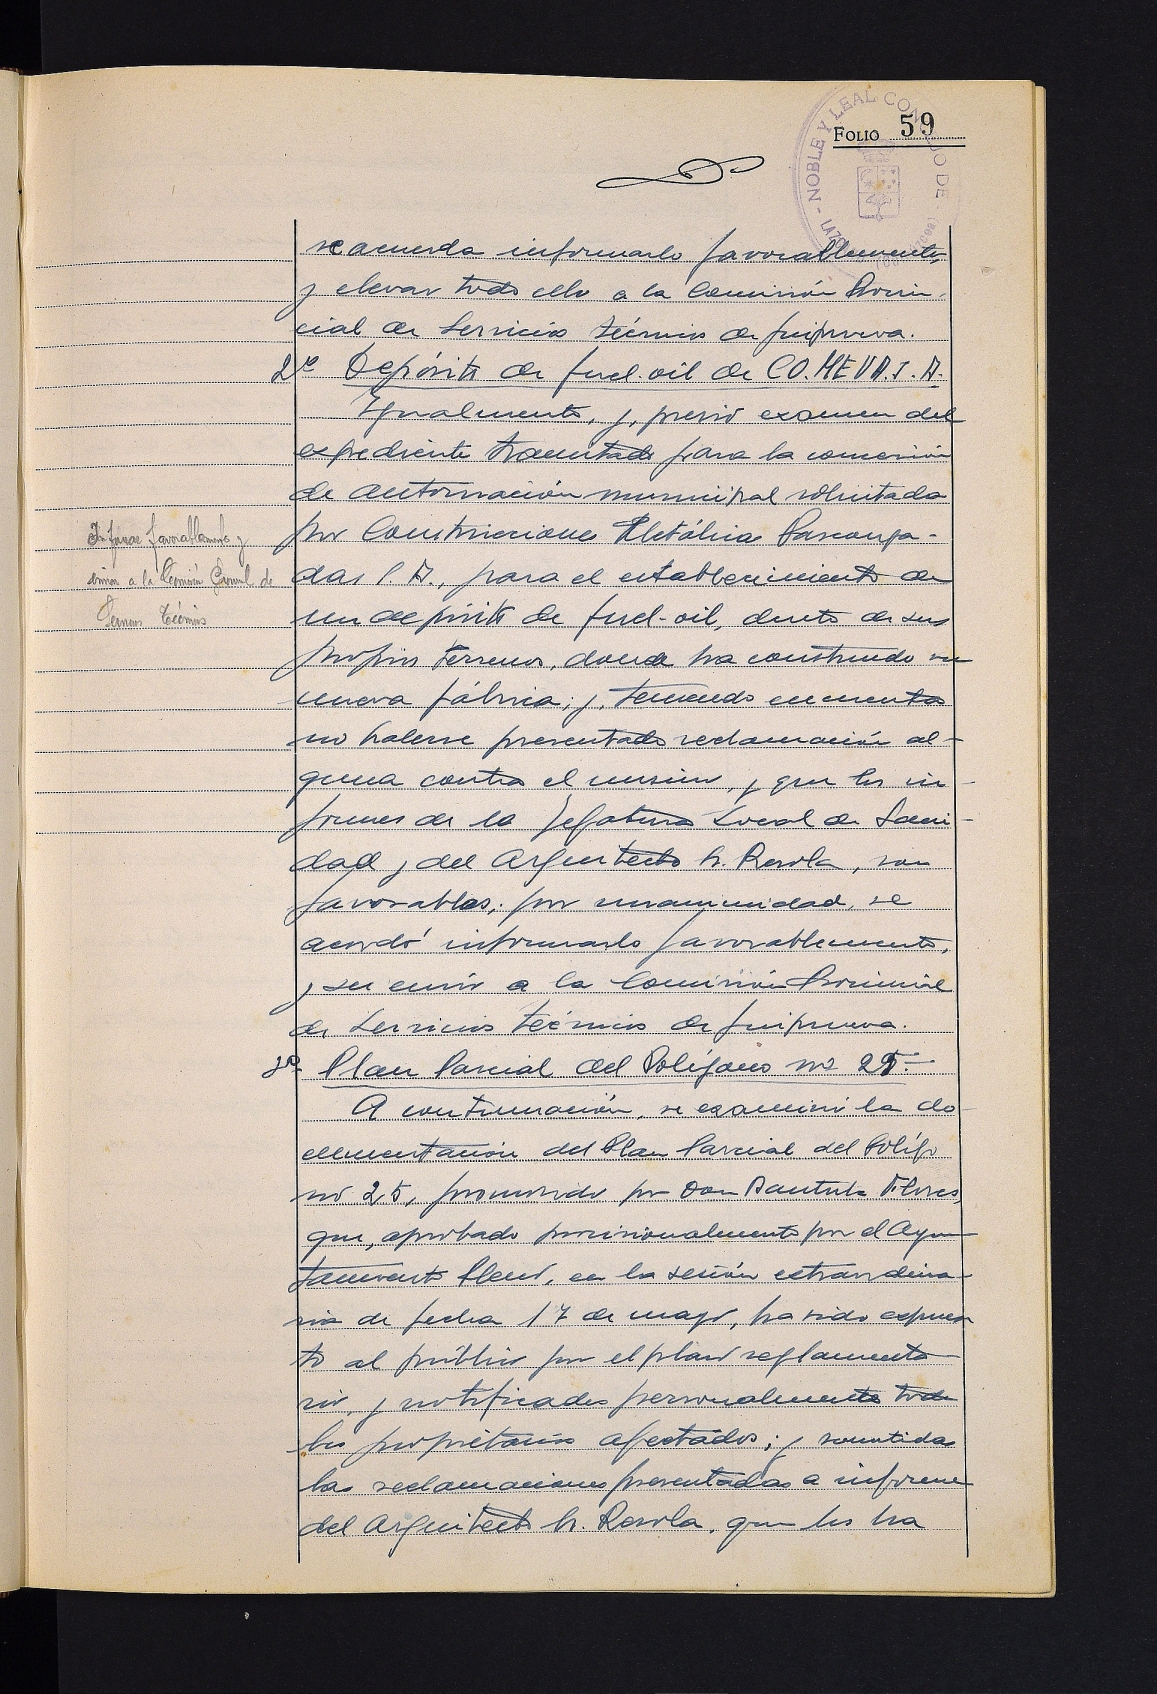 FOLIO 59
NOBLE Y LEAL CON JO DE
se acuerda informarlo favorablemente,
y elevar todo ello a la Comisión Provin-
cial de Servicios Técnicos de Guipuzcoa.
2º Depósito de fuel-oil de CO.ME.VA.S.A.
Igualmente, y, previo examen del
expediente tramitado para la concesión
de autorización municipal solicitada
por Construcciones Metálicas Vasconga-
das S.A., para el establecimiento de
un depósito de fuel-oil, dentro de sus
propios terrenos, donde ha construido su
nueva fábrica; y, teniendo en cuenta
no haberse presentado reclamación al-
guna contra el mismo, y que los in-
formes de la Jefatura Local de Sani-
dad y del Arquitecto Sr. Rezola, son
favorables; por unanimidad, se
acordó informarlo favorablemente,
y su envío a la Comisión Provincial
de Servicios Técnicos de Guipuzcoa.
Informar favorablemente y
envio a la Comisión Provincial de
Servicios Técnicos
3º Plan Parcial del Polígono nº 25.-
A continuación, se examinó la do-
cumentación del Plan Parcial del Polígo
no 25, promovido por Don Bautista Flores,
que, aprobado provisionalmente por el Ayun-
tamiento Pleno, en la sesión extraordina-
ria de fecha 17 de mayo, ha sido expues
to al público por el plazo reglamenta-
rio, y notificados personalmente todos
los propietarios afectados; y sometidas
las reclamaciones presentadas a informe
del Arquitecto Sr. Rezola, que los ha